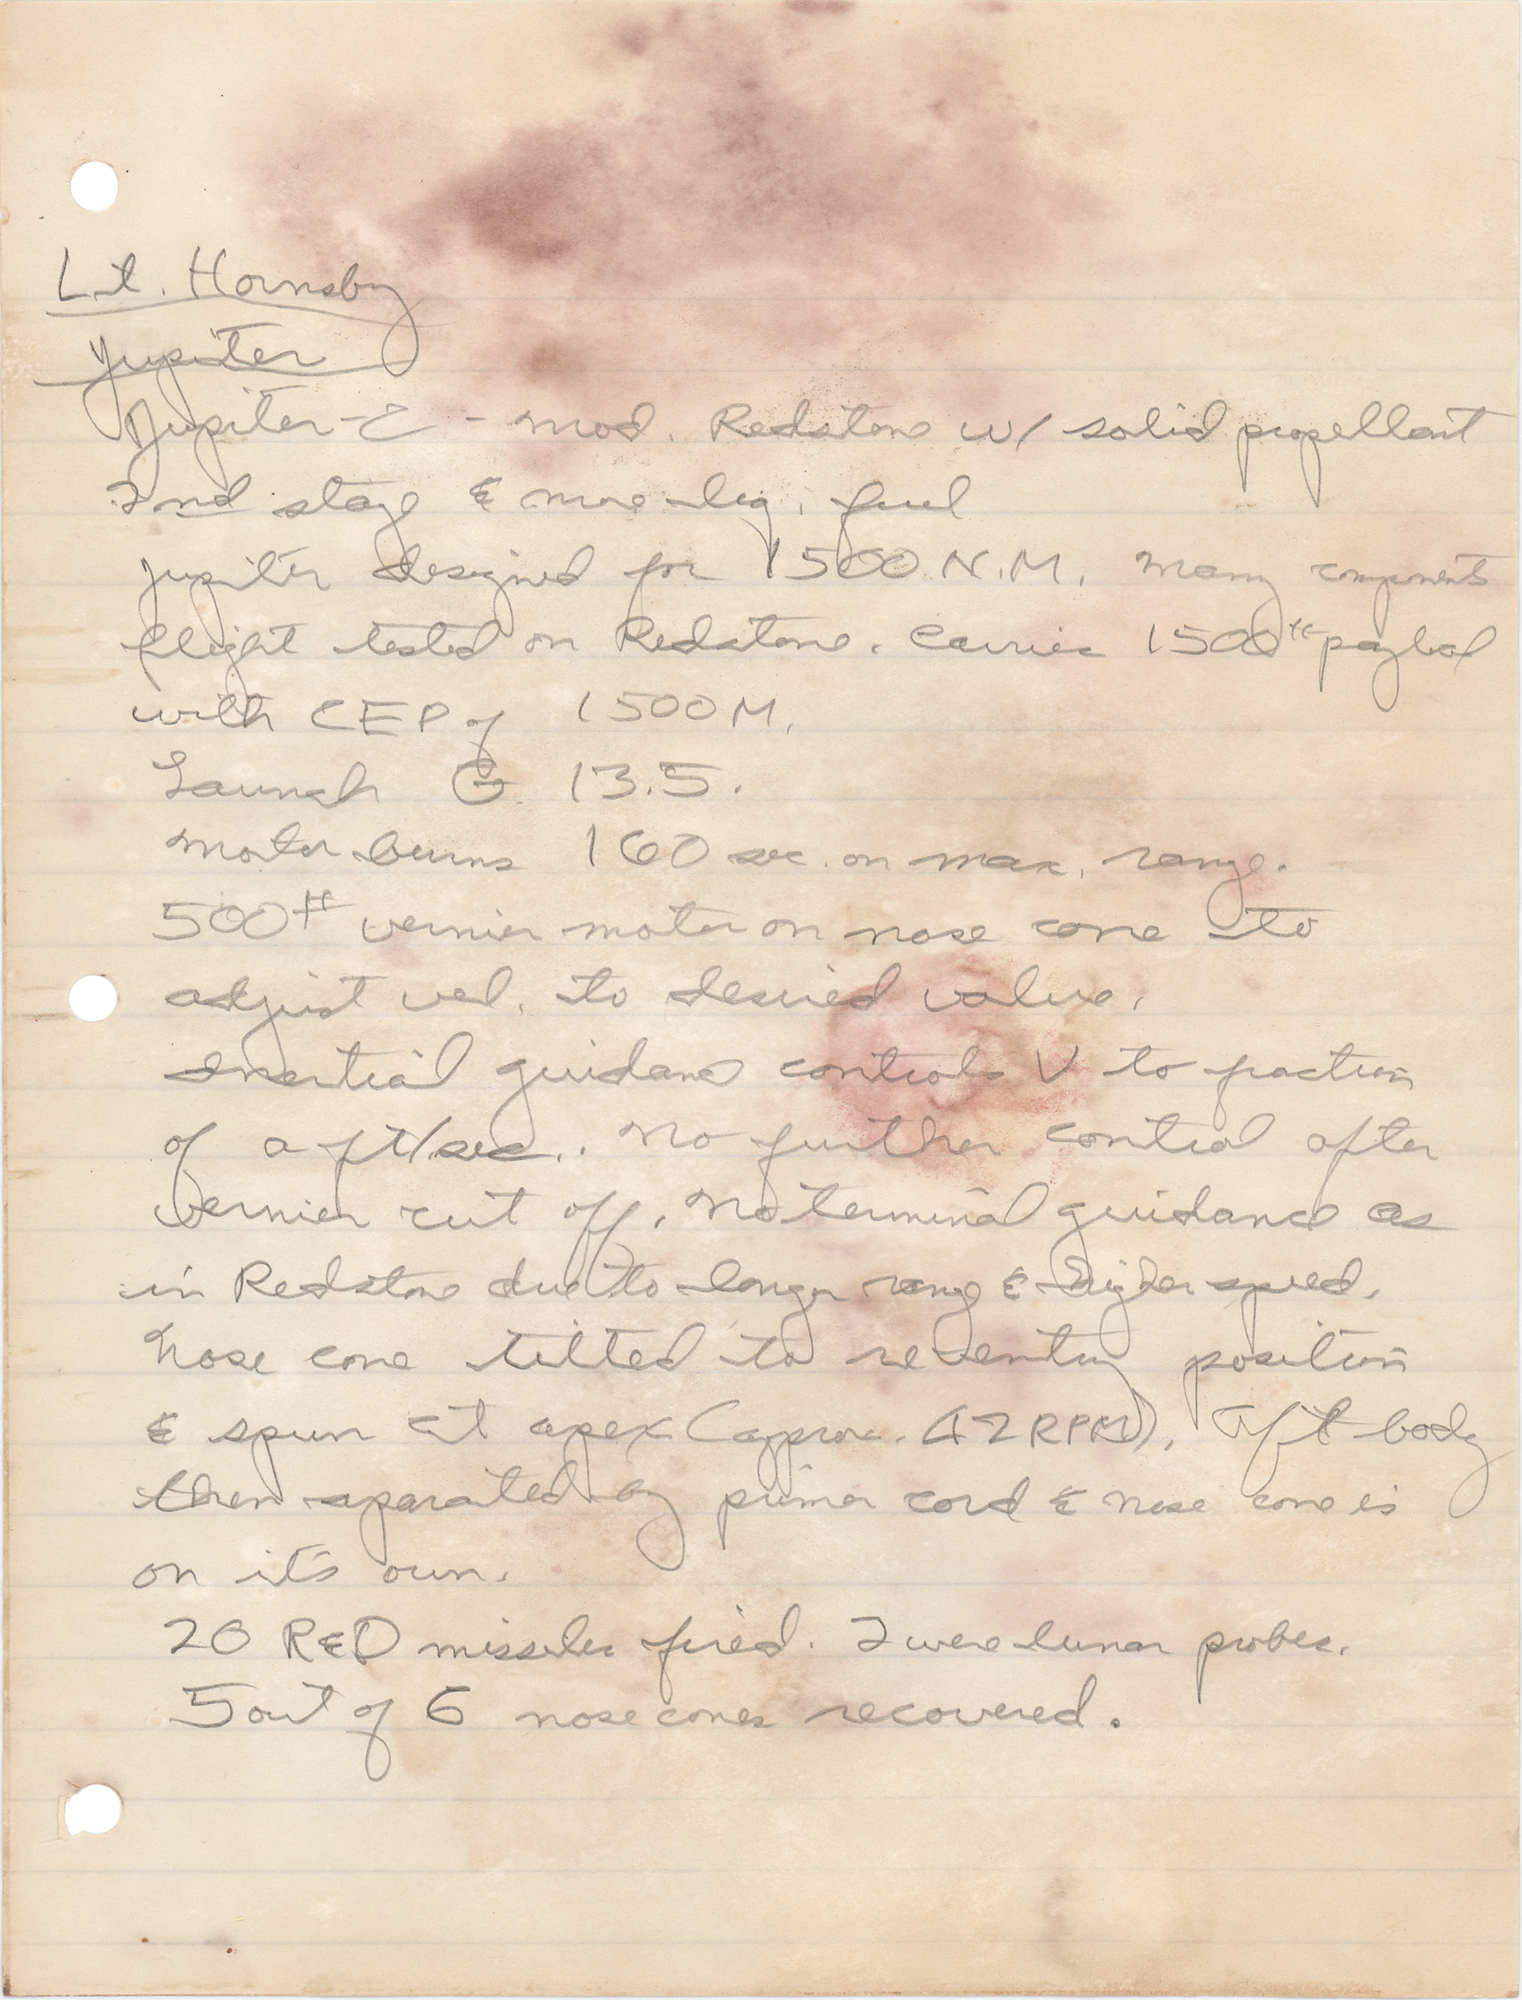 Lt. Hornsby
Jupiter
Jupiter-C - mod. Redstone w/ solid propellant
2nd stage & more liq. fuel
Jupiter designed for 1500 N.M. Many components
flight tested on Redstone. Carries 1500# payload
with CEP of 1500 M.
Launch G 13.5.
Motor burns 160 sec. on max. range.
500# vernier motor on nose cone to
adjust vel. to desired value.
Inertial guidance controls V to fraction
of a ft/sec.. No further control after
vernier cut off. No terminal guidance as
in Redstone due to longer range & higher speed.
Nose cone tilted to reentry position
& spun at apex (approx. 42 RPM). Aft body
then separated by primer cord & nose cone is
on it's own.
20 R&D missiles fired. 2 were lunar probes.
5 out of 6 nose cones recovered.